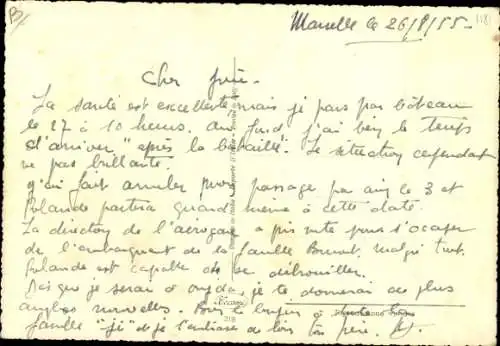 Marseille le 26/8/55
Cher frère
La santé est excellente mais je pars par bateau
le 27 à 10 heures. Au fond, j'ai bien le temps
d'arriver "après la bataille". La situation cependant
ne pas brillante.
J'ai fait annuler mon passage par air le 3 et
Rolande partira quand même à cette date.
La direction de l'aérogare a pris note pour s'occuper
de l'embarquement de la famille Brunet. Malgré tout
Rolande est capable de se débrouiller.
Dès que je serai à Oujda, je te donnerai de plus
amples nouvelles. Bons baisers à
famille "Ji" et je t'embrasse de loin ton frère.